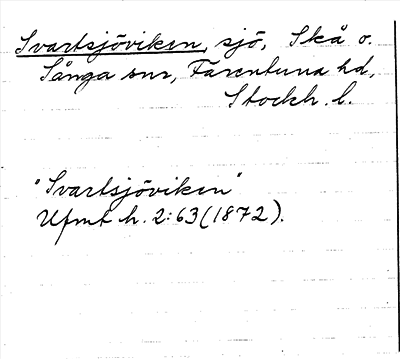 Svartsjöviken, sjö, Skå o.
Sånga snr, Färentuna hd,
Stockh. l.
"Svartsjöviken"
Ufmt h. 2:63 (1872).